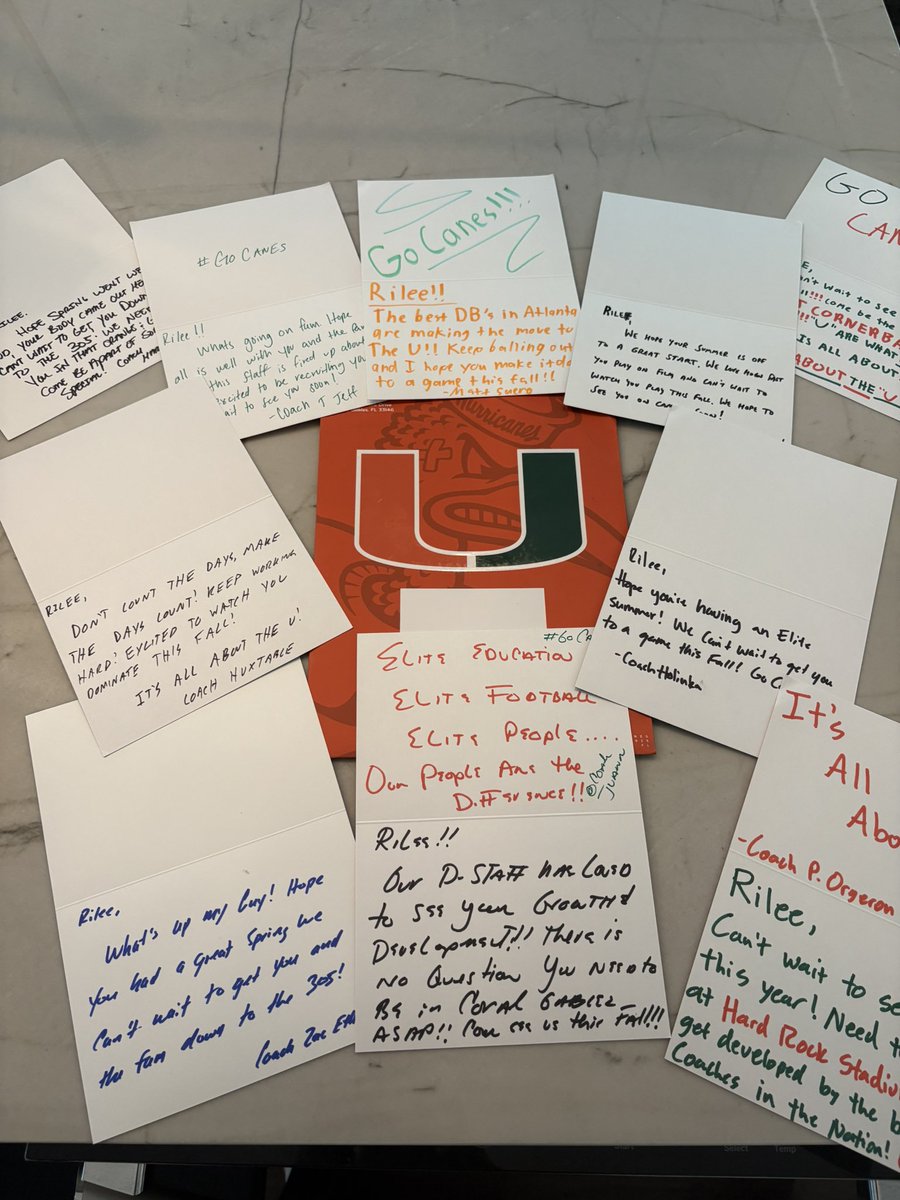 RILEE.
HOPE SPRING WENT WE
YOUR BODY CAME OUT
CAN'T WAIT TO GET YOU DOWN
TO THE 305. WE NEED
YOU IN THAT ORANGE
COME BE APART OF
SPECIAL
# GO CANES
Rilee!!
Whats going on fam. Hope
all is well with you and the
this staff is fired up about
Excited to be recruiting you
to see you soon!
-Coach T Jeff
Go Canes!!!
Rilee!!
The best DB's in Atlanta
are making the move to
The U!! Keep balling out
and I hope you make it
to a game this fall!!
-Matt Suero
RILEE,
WE HOPE YOUR SUMMER IS OFF
TO A GREAT START. WE LOVE HOW FAST
YOU PLAY ON FILM AND CAN'T WAIT TO
WATCH YOU PLAY THIS FALL. WE HOPE TO
SEE YOU ON
GO
CAN
n't wait to see
come be the
CORNERBA
"U" ARE WHAT
IS ALL ABOUT
ABOUT THE "U
FL 33146
Hurricanes
U
RILEE,
DON'T COUNT THE DAYS, MAKE
THE DAYS COUNT! KEEP WORKING
HARD! EXCITED TO WATCH YOU
DOMINATE THIS FALL!
IT'S ALL ABOUT THE U!
COACH HUXTABLE
Rilee,
Hope you're having an Elite
Summer! We Can't wait to get you
to a game this Fall! Go C
-Coach Holinka
#GO CA
ELITE EDUCATION
ELITE FOOTBALL
ELITE PEOPLE....
OUR PEOPLE ARE THE
DIFFERENCE!!
@Coach
JUANN
RILEE!!
OUR D-STAFF HAS LOVED
TO SEE YOUR GROWTH &
DEVELOPMENT!!! THERE IS
NO QUESTION YOU NEED TO
BE IN CORAL GABLES
ASAP!! COME SEE US THIS FALL!!!
Rilee,
What's up my Guy! Hope
you had a great Spring we
Can't wait to get you and
the fam down to the 305!
Coach Zac Eth
It's
All
Abo
-Coach P. Orgeron
Rilee,
Can't wait to se
this year! Need t
at Hard Rock Stadiu
get developed by the b
Coaches in the Nation!
Select
Temp